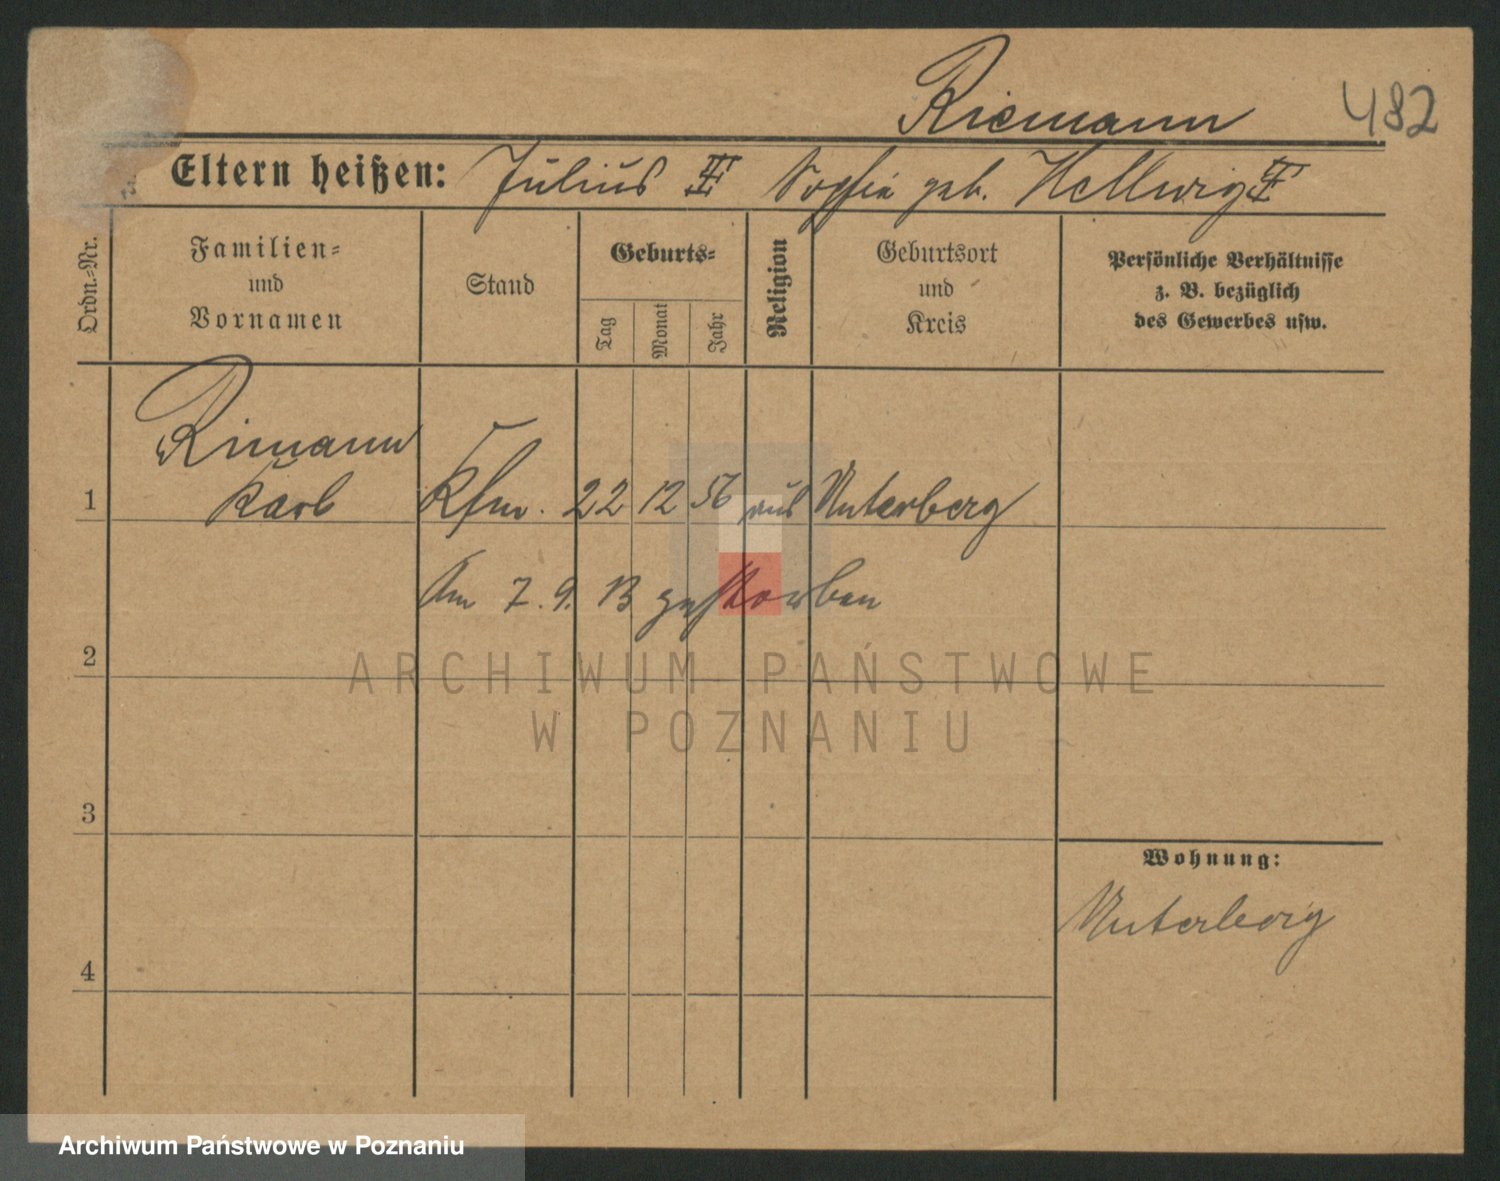 Riemann
482
Eltern heißen: Julius Sophie geb. Hellwig
Ordn.-Nr.
Familien-
und
Vornamen
Stand
Geburts-
Tag
Monat
Jahr
Religion
Geburtsort
und
Kreis
Persönliche Verhältnisse
z. B. bezüglich
des Gewerbes usw.
Rimann
1 Karl Kfm. 22 12 56 aus Unterberg
Am 7. 9. 13 gestorben
2
ARCHIWUM PAŃSTWOWE
W POZNANIU
3
Wohnung:
Unterberg
4
Archiwum Państwowe w Poznaniu